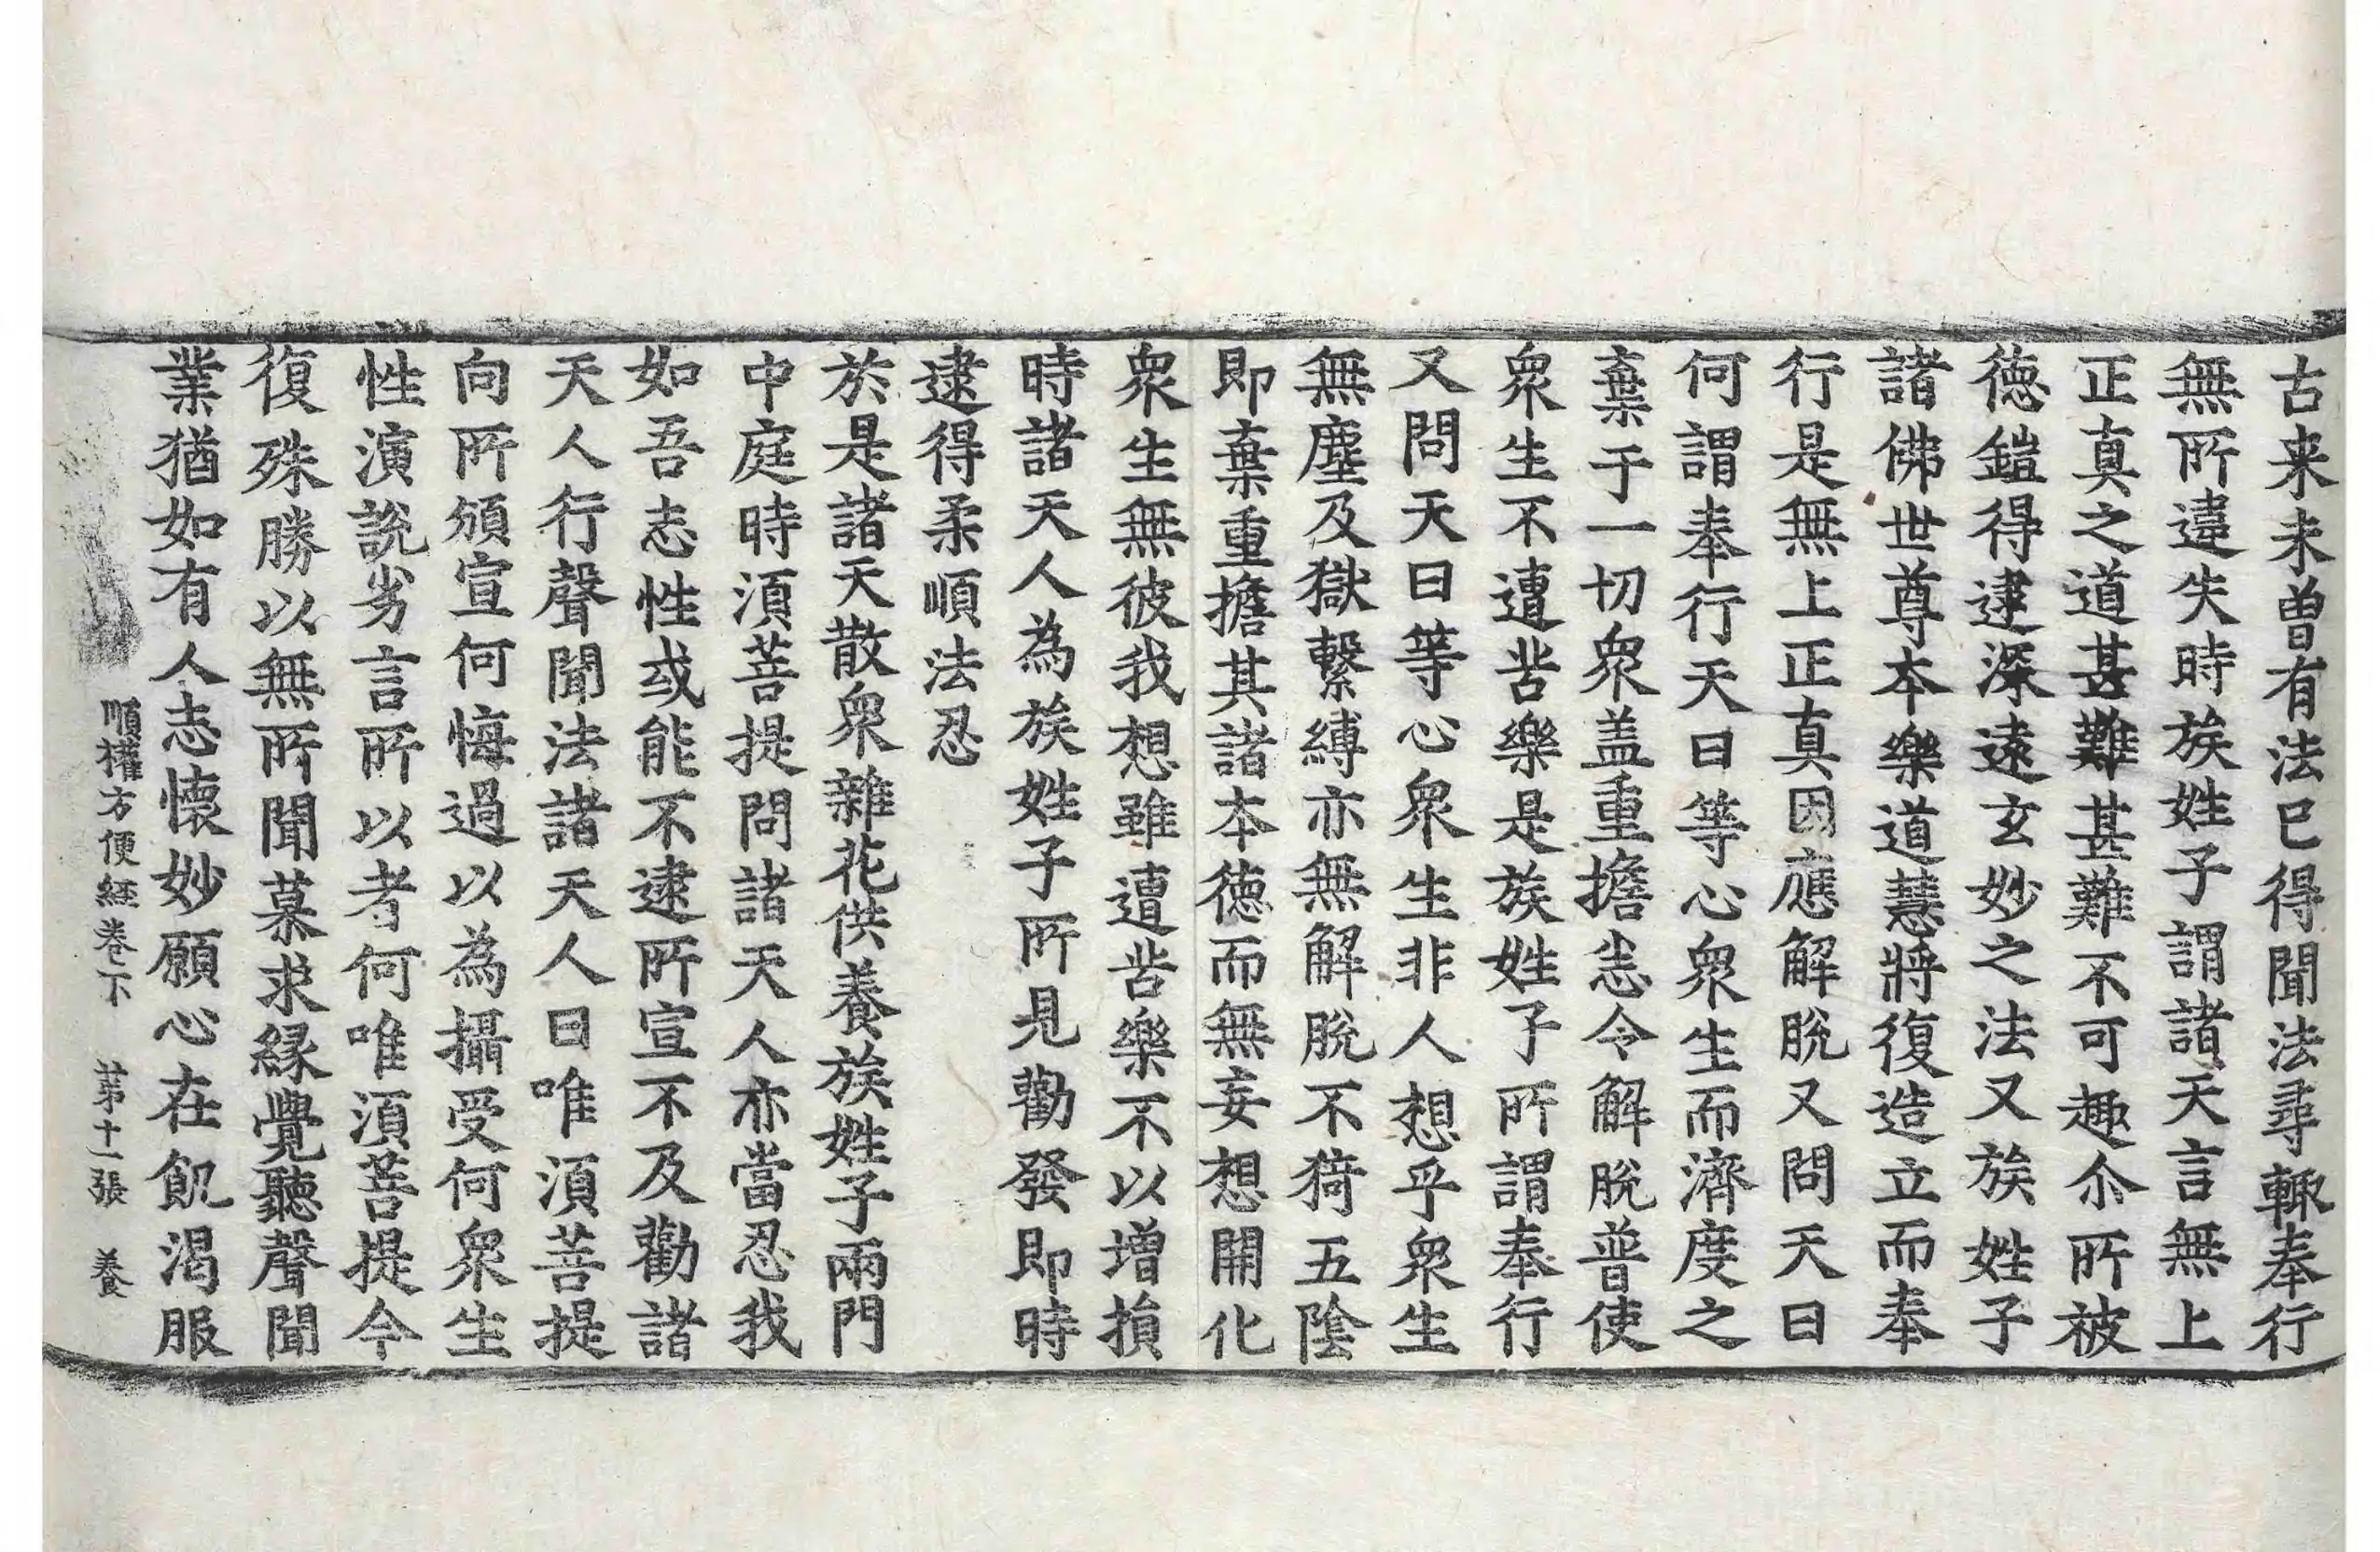 古来未曾有法已得聞法尋輙奉行
無所違失時族姓子謂諸天言無上
正真之道甚難甚難不可趣尒所被
德鎧得逮深遠玄妙之法又族姓子
諸佛世尊本樂道慧將復造立而奉
行是無上正真因應解脫又問天曰
何謂奉行天曰等心衆生而濟度之
棄于一切衆盖重擔恙令解脫普使
衆生不遭苦樂是族姓子所謂奉行
又問天曰等心衆生非人想乎衆生
無塵及獄繫縛亦無解脫不猗五陰
即棄重擔其諸本德而無妄想開化
衆生無彼我想雖遭苦樂不以增損
時諸天人為族姓子所見勸發即時
逮得柔順法忍
於是諸天散衆雜花供養族姓子兩門
中庭時須菩提問諸天人亦當忍我
如吾志性或能不逮所宣不及勸諸
天人行聲聞法諸天人曰唯須菩提
向所頒宣何悔過以為攝受何衆生
性演說劣言所以者何唯須菩提今
復殊勝以無所聞慕求緣覺聽聲聞
業猶如有人志懷妙願心在飢渴服
順權方便経卷下 第十一張 養